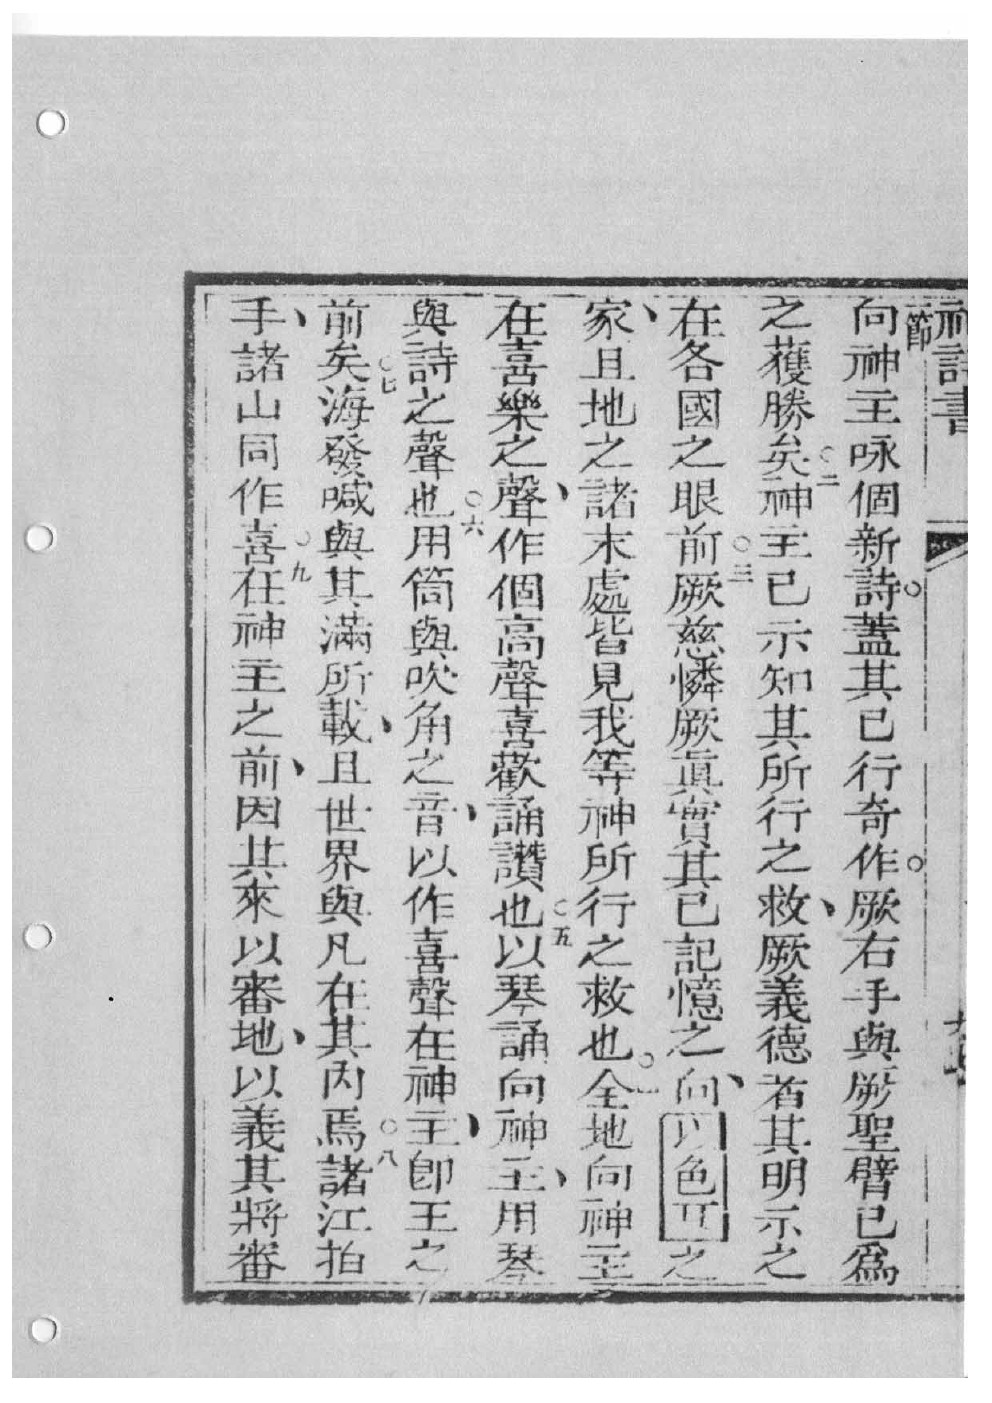 神詩書
節
向神主咏個新詩。蓋其已行奇作。厥右手與厥聖臂已爲
之獲勝矣○二神主已示知其所行之救、厥義德者其明示之
在各國之眼前○三厥慈憐厥眞實其已記憶之、向以色耳之
家、且地之諸末處皆見我等神所行之救也○全地向神主
在喜樂之聲、作個高聲喜歡誦讚也○五以琴誦向神主、用琴
與詩之聲也○六用筒與吹角之音、以作喜聲在神主、卽王之
前矣○七海發喊與其滿所載、且世界與凡在其內焉○八諸江拍
手、諸山同作喜○九在神主之前、因其來以審地、以義其將審